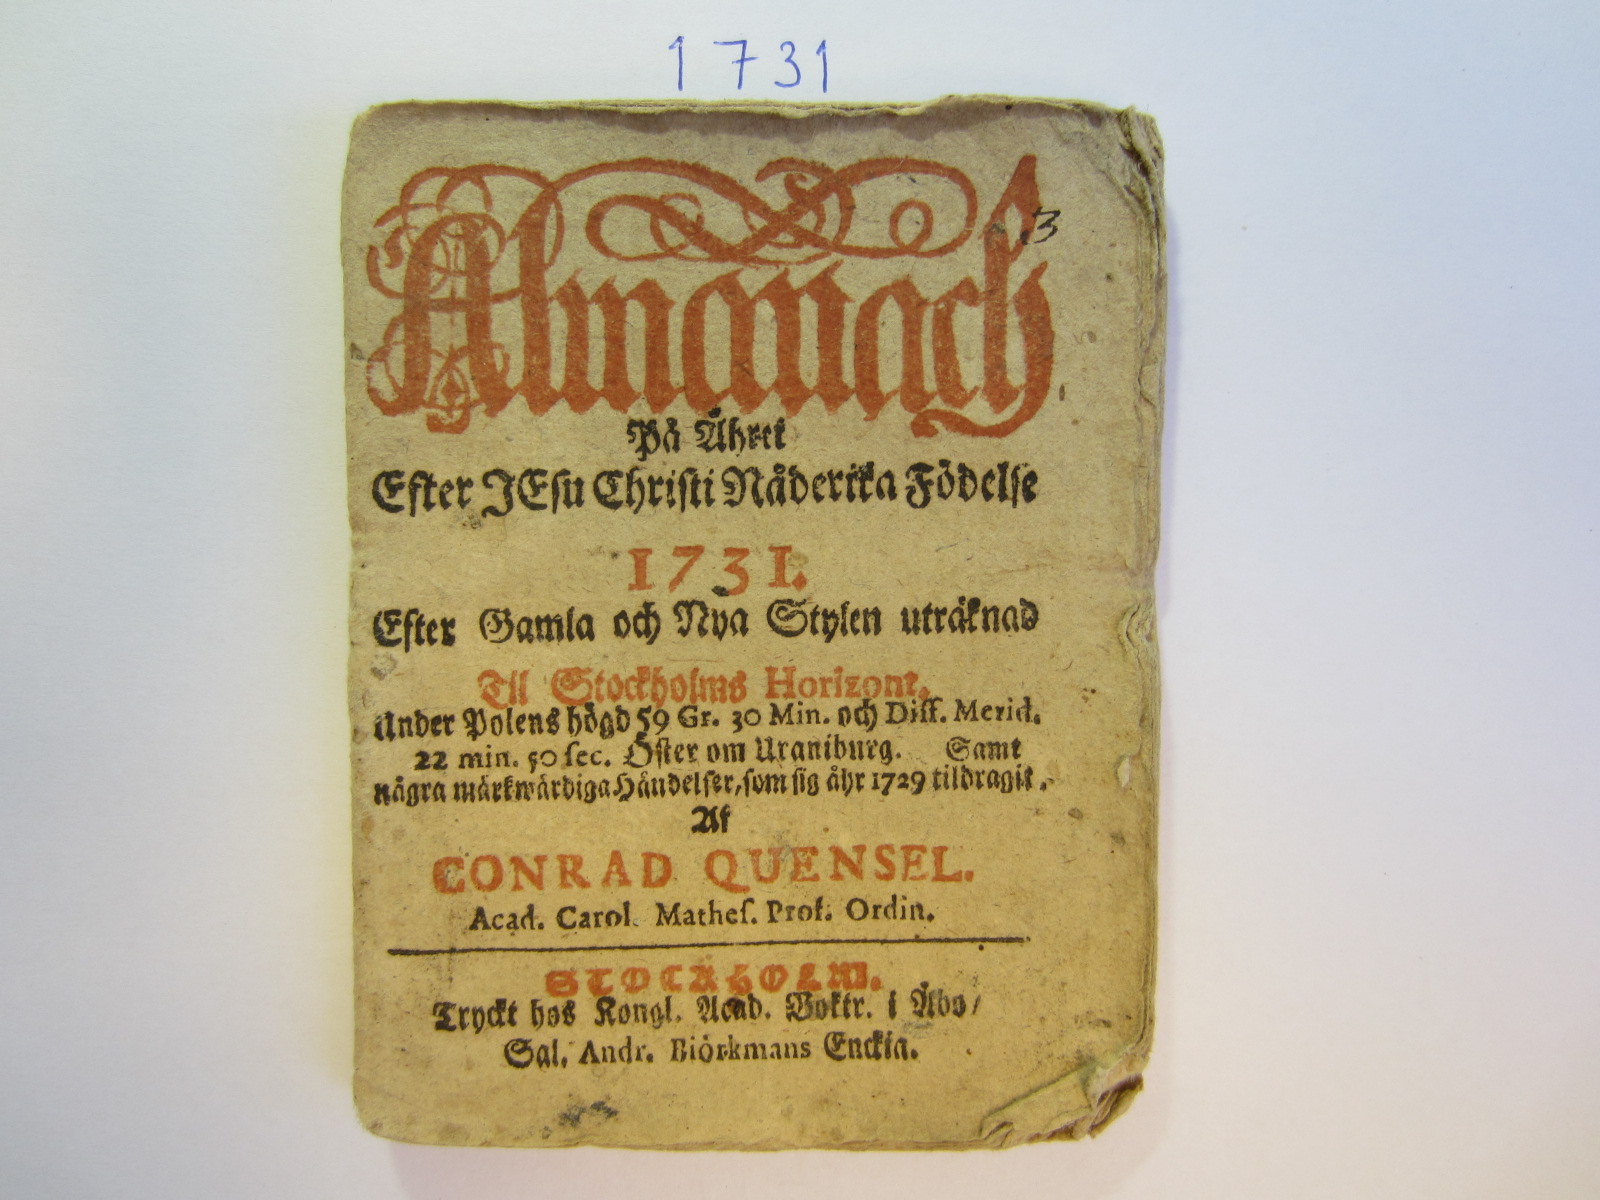 1731
3
Almanach
På Åhret
Efter JEsu Christi Nåderika Födelse
1731.
Efter Gamla och Nya Stylen uträknad
Til Stockholms Horizont,
Under Polens högd 59 Gr. 30 Min. och Diff. Merid.
22 min. 50 sec. Öster om Uraniburg. Samt
några märkwärdiga Händelser, som sig åhr 1729 tildragit.
Af
CONRAD QUENSEL.
Acad. Carol. Mathes. Prof. Ordin.
STOCKHOLM.
Tryckt hos Kongl. Acad. Boktr. i Åbo/
Sal. Andr. Biörkmans Enckia.